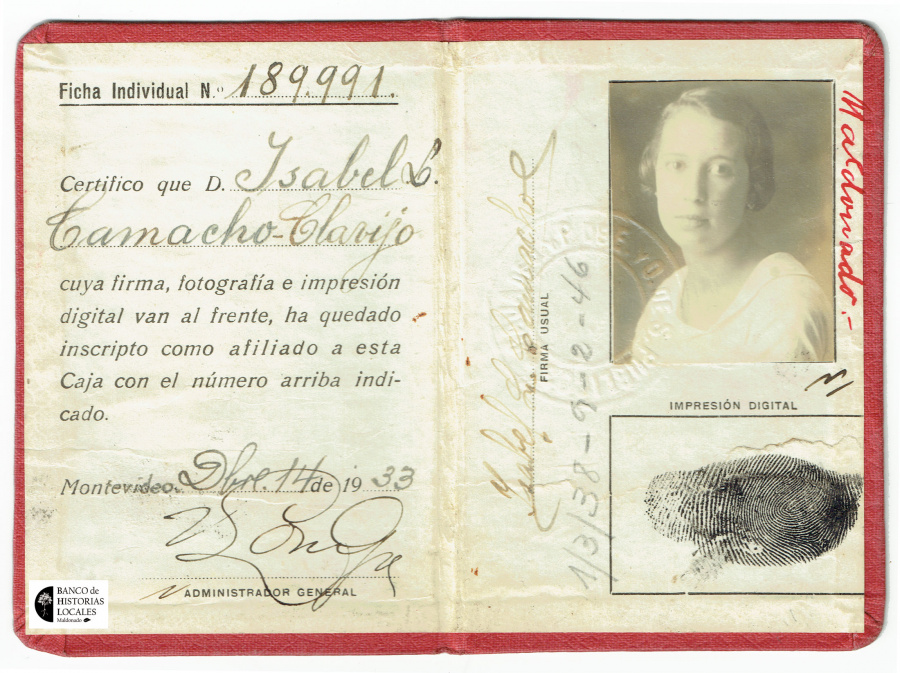 Ficha Individual N.º 189.991.
Certifico que D. Isabel L.
Camacho-Clavijo
cuya firma, fotografía e impresión
digital van al frente, ha quedado
inscripto como afiliado a esta
Caja con el número arriba indi-
cado.
Montevideo, Dbre. 14 de 1933
ADMINISTRADOR GENERAL
BANCO de
HISTORIAS
LOCALES
Maldonado
Isabel L. Camacho
FIRMA USUAL
1/3/38-9-2-46
Maldonado.-
IMPRESIÓN DIGITAL